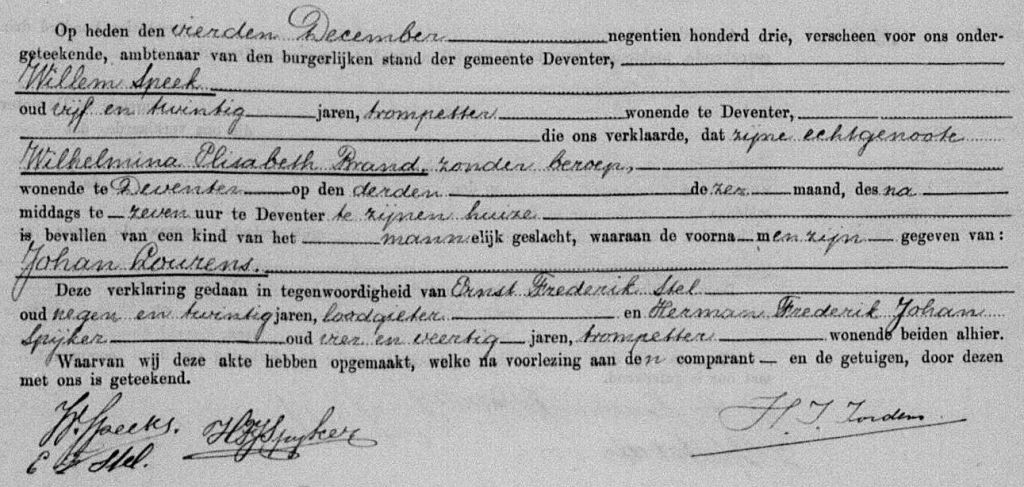 Op heden den vierden December negentien honderd drie, verscheen voor ons onder-
geteekende, ambtenaar van den burgerlijken stand der gemeente Deventer,
Willem Speek
oud vijf en twintig jaren, trompetter wonende te Deventer,
die ons verklaarde, dat zijne echtgenoote
Wilhelmina Elisabeth Brand, zonder beroep,
wonende te Deventer op den derden dezer maand, des na
middags te zeven uur te Deventer te zijnen huize
is bevallen van een kind van het mannelijk geslacht, waaraan de voornamen zijn gegeven van:
Johan Lourens.
Deze verklaring gedaan in tegenwoordigheid van Ernst Frederik Stel
oud negen en twintig jaren, loodgieter en Herman Frederik Johan
Spijker oud vier en veertig jaren, trompetter wonende beiden alhier.
Waarvan wij deze akte hebben opgemaakt, welke na voorlezing aan den comparant en de getuigen, door dezen
met ons is geteekend.
W. Speeks. HFJSpijker H. J. Jordens
E F Stel.